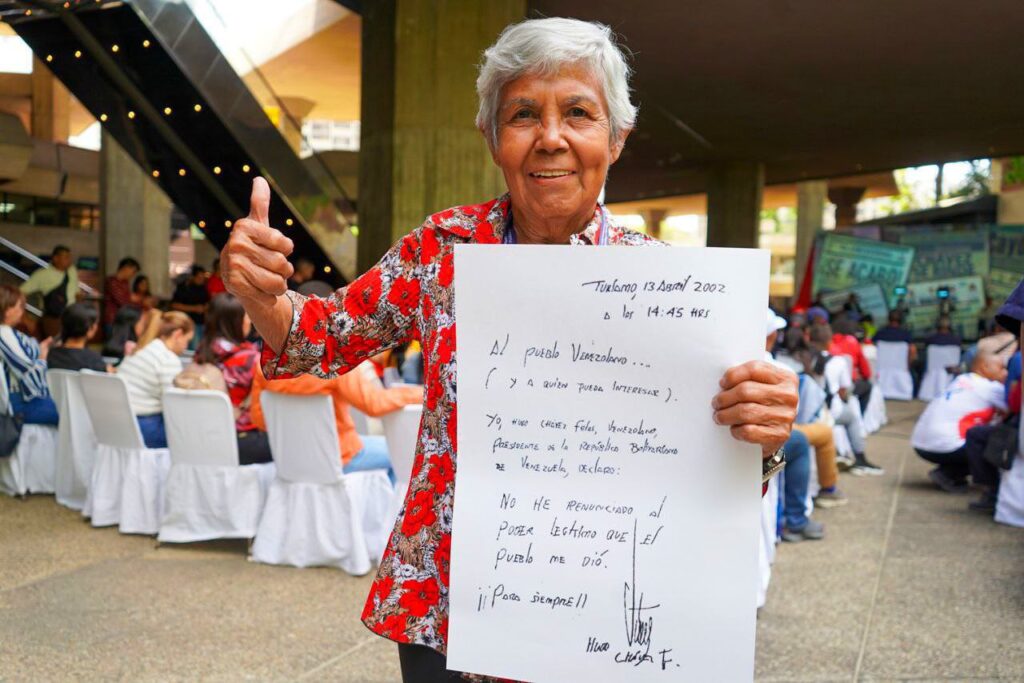 Turiamo, 13 Abril 2002
a los 14:45 hrs.
Al pueblo Venezolano...
(y a quien pueda interesar).
Yo, Hugo Chávez Frías, Venezolano,
Presidente de la República Bolivariana
de Venezuela, declaro:
No he renunciado al
poder legítimo que el
pueblo me dió.
¡¡Para siempre!!
Hugo
Chávez F.
SE ACABÓ